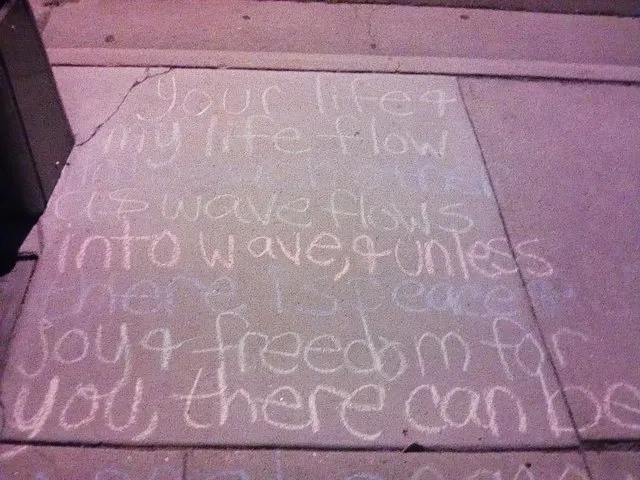 your life &
my life flow
into each other
as wave flows
into wave, & unless
there is peace &
joy & freedom for
you, there can be